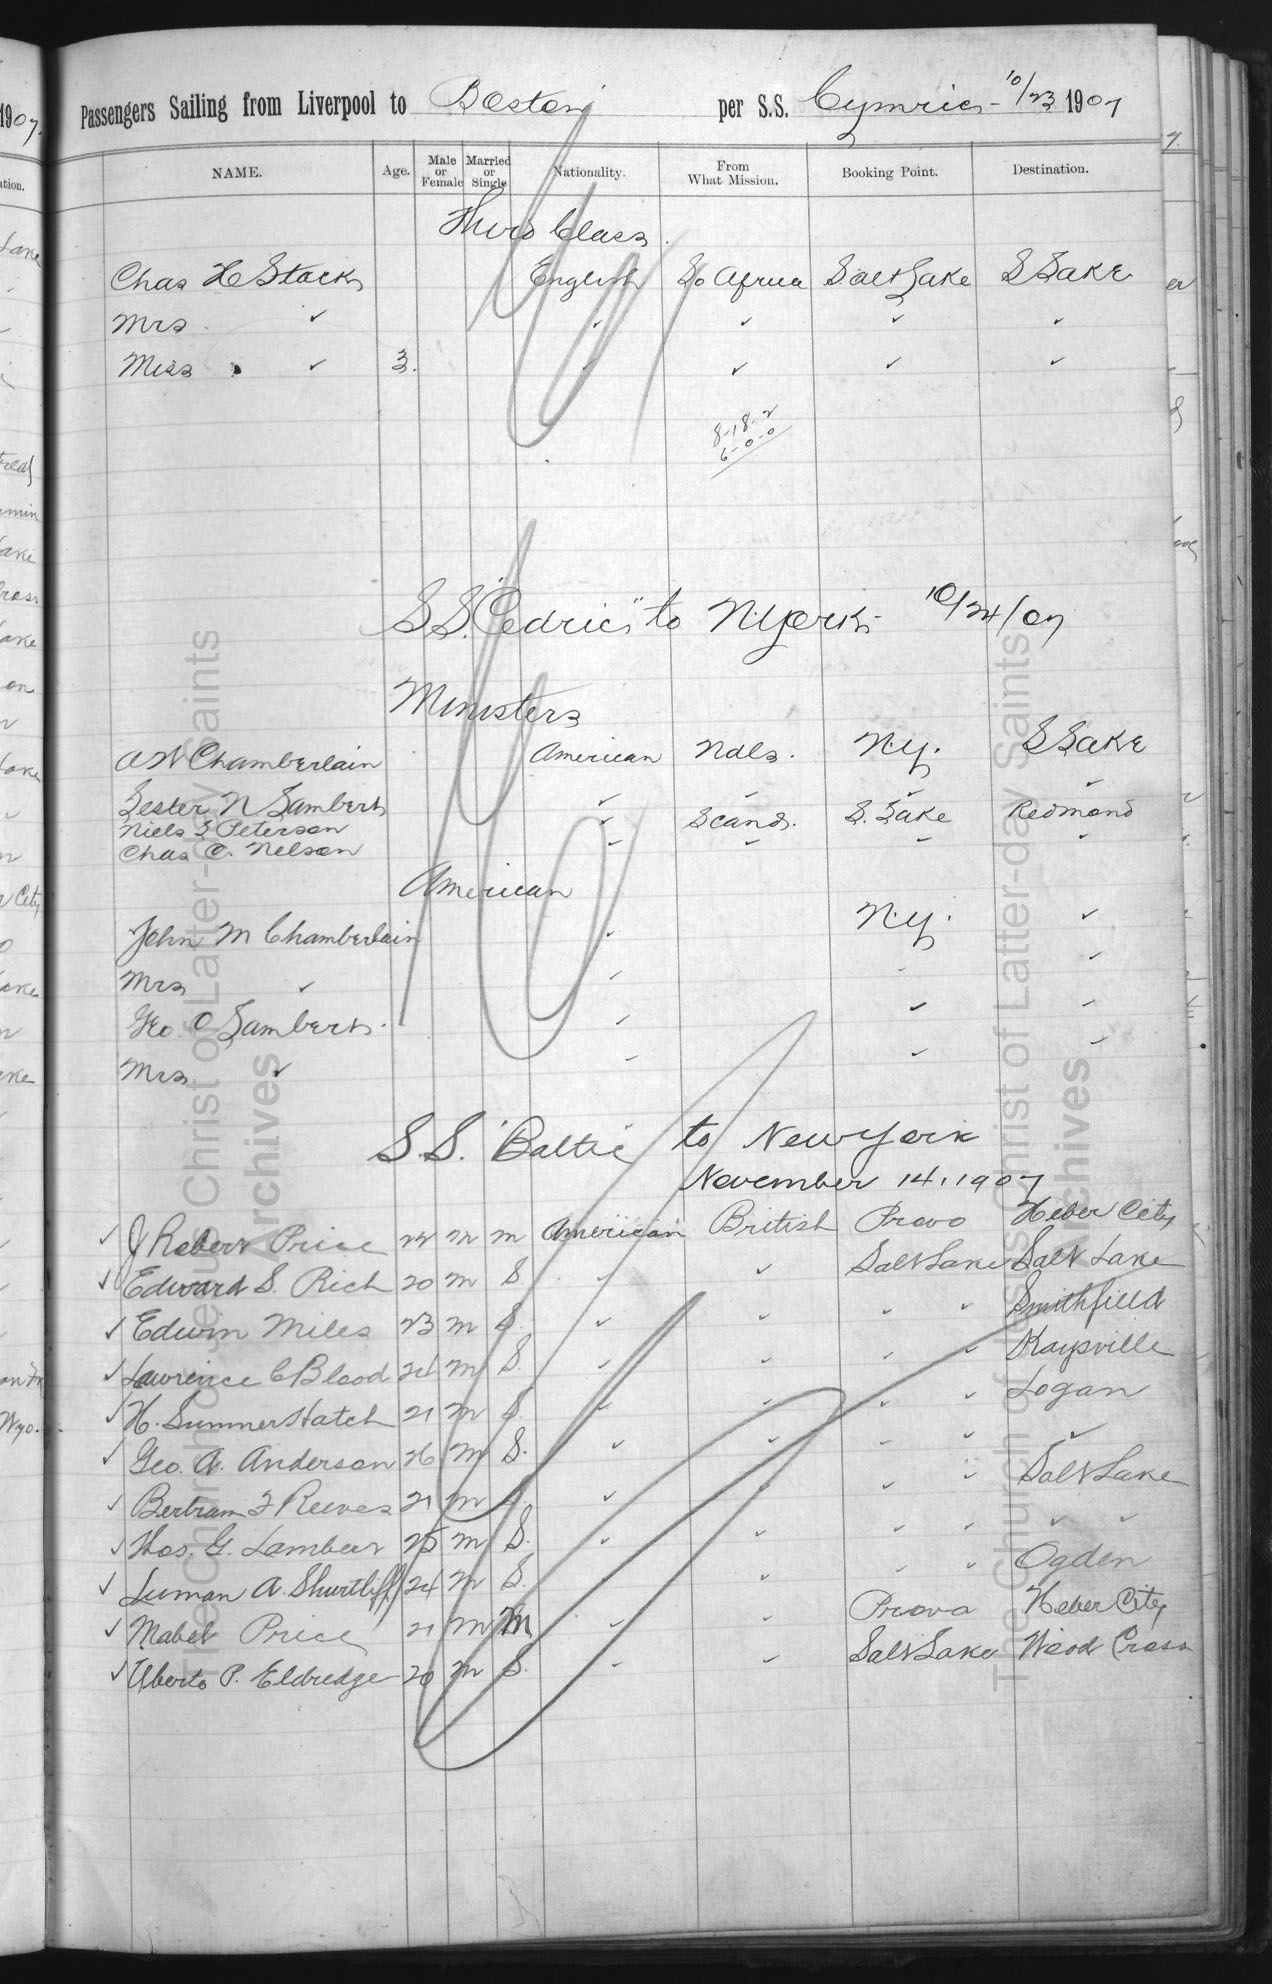 Passengers Sailing from Liverpool to Boston per S.S. Cymric - 10/23 1907
NAME. Age. Male or Female Married or Single Nationality. From What Mission. Booking Point. Destination.
Third Class.
Chas H Stack English So Africa Salt Lake S Lake
Mrs ✓ ✓ ✓ ✓ ✓
Miss ✓ 3. ✓ ✓ ✓ ✓
8-18-2
6-0-0
S.S. "Cedric" to N. York - 10/24/07
Ministers
A W Chamberlain American Nds. N.Y. S Lake
Lester N Lambert ✓ ✓ ✓ ✓
Niels S Peterson ✓ Scand. S. Lake Redmond
Chas C. Nelson ✓ ✓ ✓ ✓
American
John M Chamberlain ✓ N.Y. ✓
Mrs ✓ ✓ ✓
Geo O Lambert ✓ ✓ ✓
Mrs ✓ ✓ ✓ ✓
S.S. "Baltic" to New York
November 14, 1907
✓ J Robert Price M M American British Provo Heber City
✓ Edward S. Rich 20 M S. ✓ ✓ Salt Lake Salt Lake
✓ Edwin Miles 23 M S. ✓ ✓ ✓ ✓ Smithfield
✓ Lawrence C Blood 24 M S. ✓ ✓ ✓ ✓ Kaysville
✓ H. Sumner Hatch 21 M S. ✓ ✓ ✓ ✓ Logan
✓ Geo. A. Anderson 26 M S. ✓ ✓ ✓ ✓ ✓
✓ Bertram F Reeves 21 M S. ✓ ✓ ✓ ✓ Salt Lake
✓ Thos. G. Lambert 25 M S. ✓ ✓ ✓ ✓ ✓ ✓
✓ Luman A. Shurtliff 24 M S. ✓ ✓ ✓ Ogden
✓ Mabel Price 21 M M ✓ ✓ Provo Heber City
✓ Alberto P. Eldredge 20 M S. ✓ ✓ Salt Lake Wood Cross
The Church of Jesus Christ of Latter-day Saints
Archives
The Church of Jesus Christ of Latter-day Saints
Archives